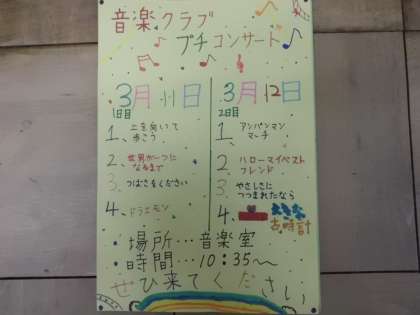 音楽クラブ
プチコンサート
3月11日
1日目
1、上を向いて
歩こう
2、世界が一つに
なるまで
3、つばさをください
4、ドラエモン
3月12日
2日目
1、アンパンマン
マーチ
2、ハローマイベスト
フレンド
3、やさしさに
つつまれたなら
4、大きな
古時計
・場所…音楽室
・時間…10:35〜
ぜひ来てください